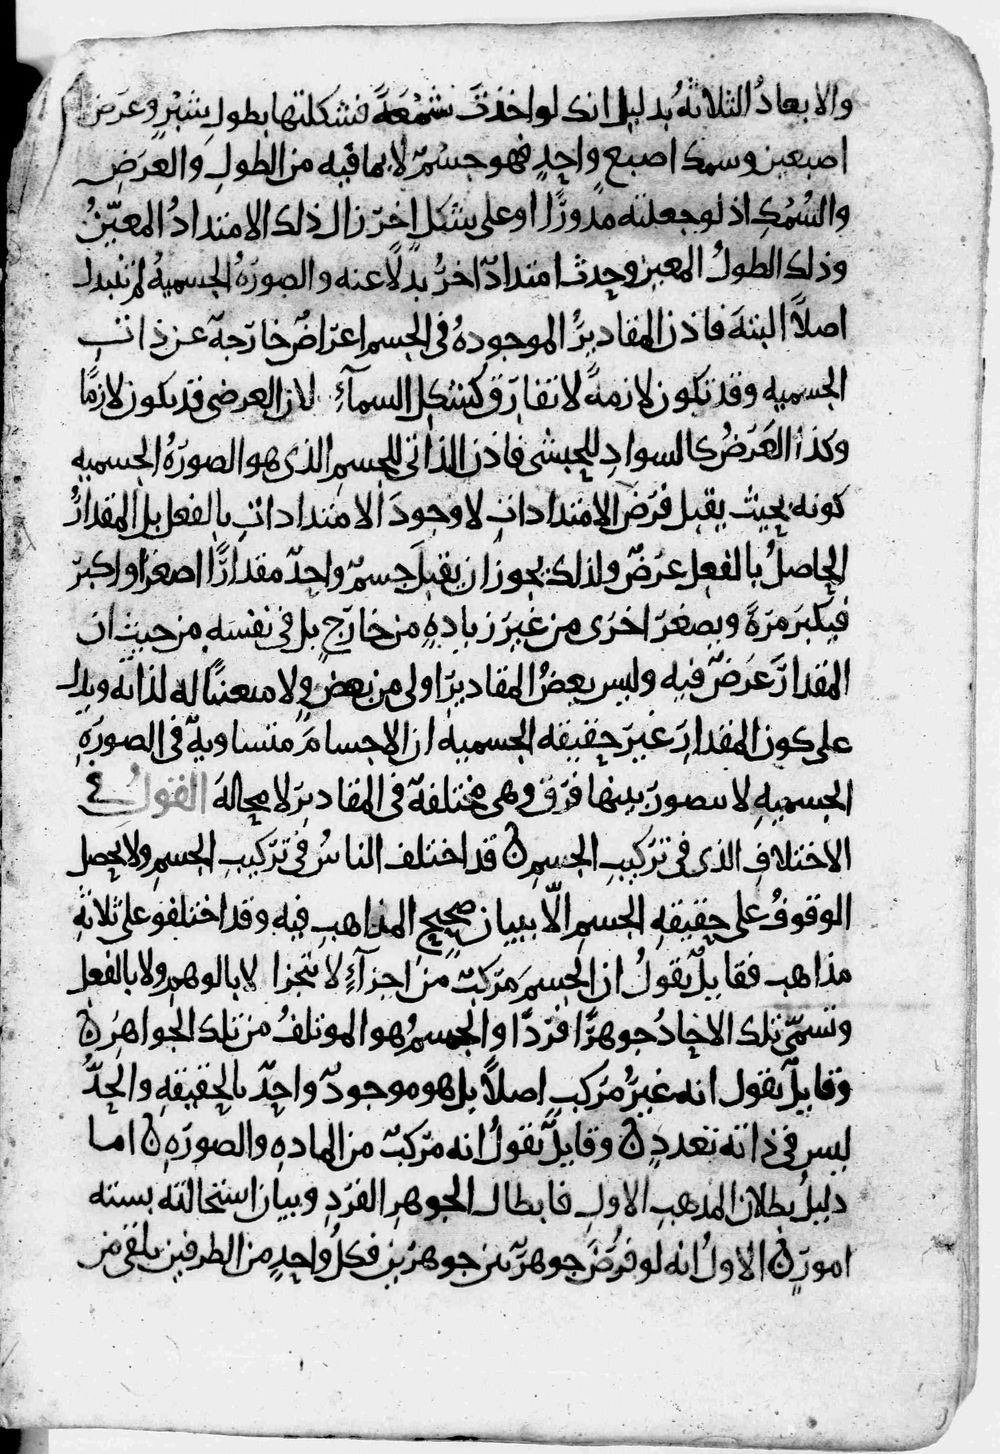 والابعادُ الثلاثةُ بدليل انك لو اخذتَ شمْعَةً فشكلتها بطول شبْرٍ وعَرَض
اصبعين وسمك اصبع واحدٍ فهو جسمٌ لا بما فيه من الطولِ والعَرَضِ
والسُمْكِ اذ لو جعلته مدوّرًا او على شكل اخرَ زال ذلك الامتدادُ المعيّنُ
وذلك الطولُ المعين وحدث امتدادٌ اخرُ بدلاً عنه والصورَةُ الجسميهُ لم تتبدل
اصلاً البتهَ فاذن المقاديرُ الموجودهُ فى الجسم اعرَاضٌ خارجةٌ عن ذات
الجسميه وقد تكون لازمةً لا تفارَق كشكل السمآءِ لان العرضى قد يكون لازمًا
وكذا العَرَضُ كالسوادِ للحبشى فاذن الذاتى للجسمِ الذى هو الصورَةُ الجسميه
كونه بحيث يقبل فرَضَ الامتداداتِ لا وجودَ الامتداداتِ بالفعل بل المقدارُ
الحاصلُ بالفعل عرَضٌ ولذلك يجوز ان يقبلَ جسمٌ واحدٌ مقدارًا اصغرَ او اكبرَ
فيكبرَ مرّةً ويصغرَ اخرَى من غيرَ زيادهٍ من خارَجٍ بل فى نفسَهِ من حيث ان
المقدارَ عَرَضٌ فيه وليس بعضُ المقاديرَ اولى من بعضٍ ولا متعينًا له لذاته ويدل
على كون المقدارَ غيرَ حقيقه الجسميه ان الاجسامَ متساويةٌ فى الصورَةِ
الجسميهِ لا يتصورَ بينها فرَق وهى مختلفةٌ فى المقاديرَ لا محالةَ القولُ فى
الاختلافِ الذى فى ترَكيبِ الجسمِ ن قد اختلف الناسُ فى ترَكيبِ الجسمِ ولا يحصل
الوقوفُ على حقيقهِ الجسمِ الّا ببيان صحيحِ المذاهبِ فيه وقد اختلفو على ثلاثةِ
مذاهب فقايلٌ يقولُ ان الجسمَ مرّكبٌ من اجزآءٍ لا تتجزا لا بالوهمِ ولا بالفعل
وتسمّى تلك الاحادُ جوهرًا فرَدًا والجسمُ هو الموتلفُ من تلك الجواهرَ ن
وقايلٌ يقول انه غيرُ مرَكبٍ اصلاً بل هو موجودٌ واحدٌ بالحقيقهِ والحدِّ
ليس فى ذاته تعددٌ ن وقايلٌ يقولُ انه مرّكبٌ من المادهِ والصورَهِ ن اما
دليلُ بطلان المذهبِ الاولِ فابطال الجوهرِ الفرَدِ وبيان استحالته بسته
امورٍ ن الاولُ انه لو فرُضَ جوهرٌ بين جوهرَين فكلُ واحدٍ من الطرفين يلقى من